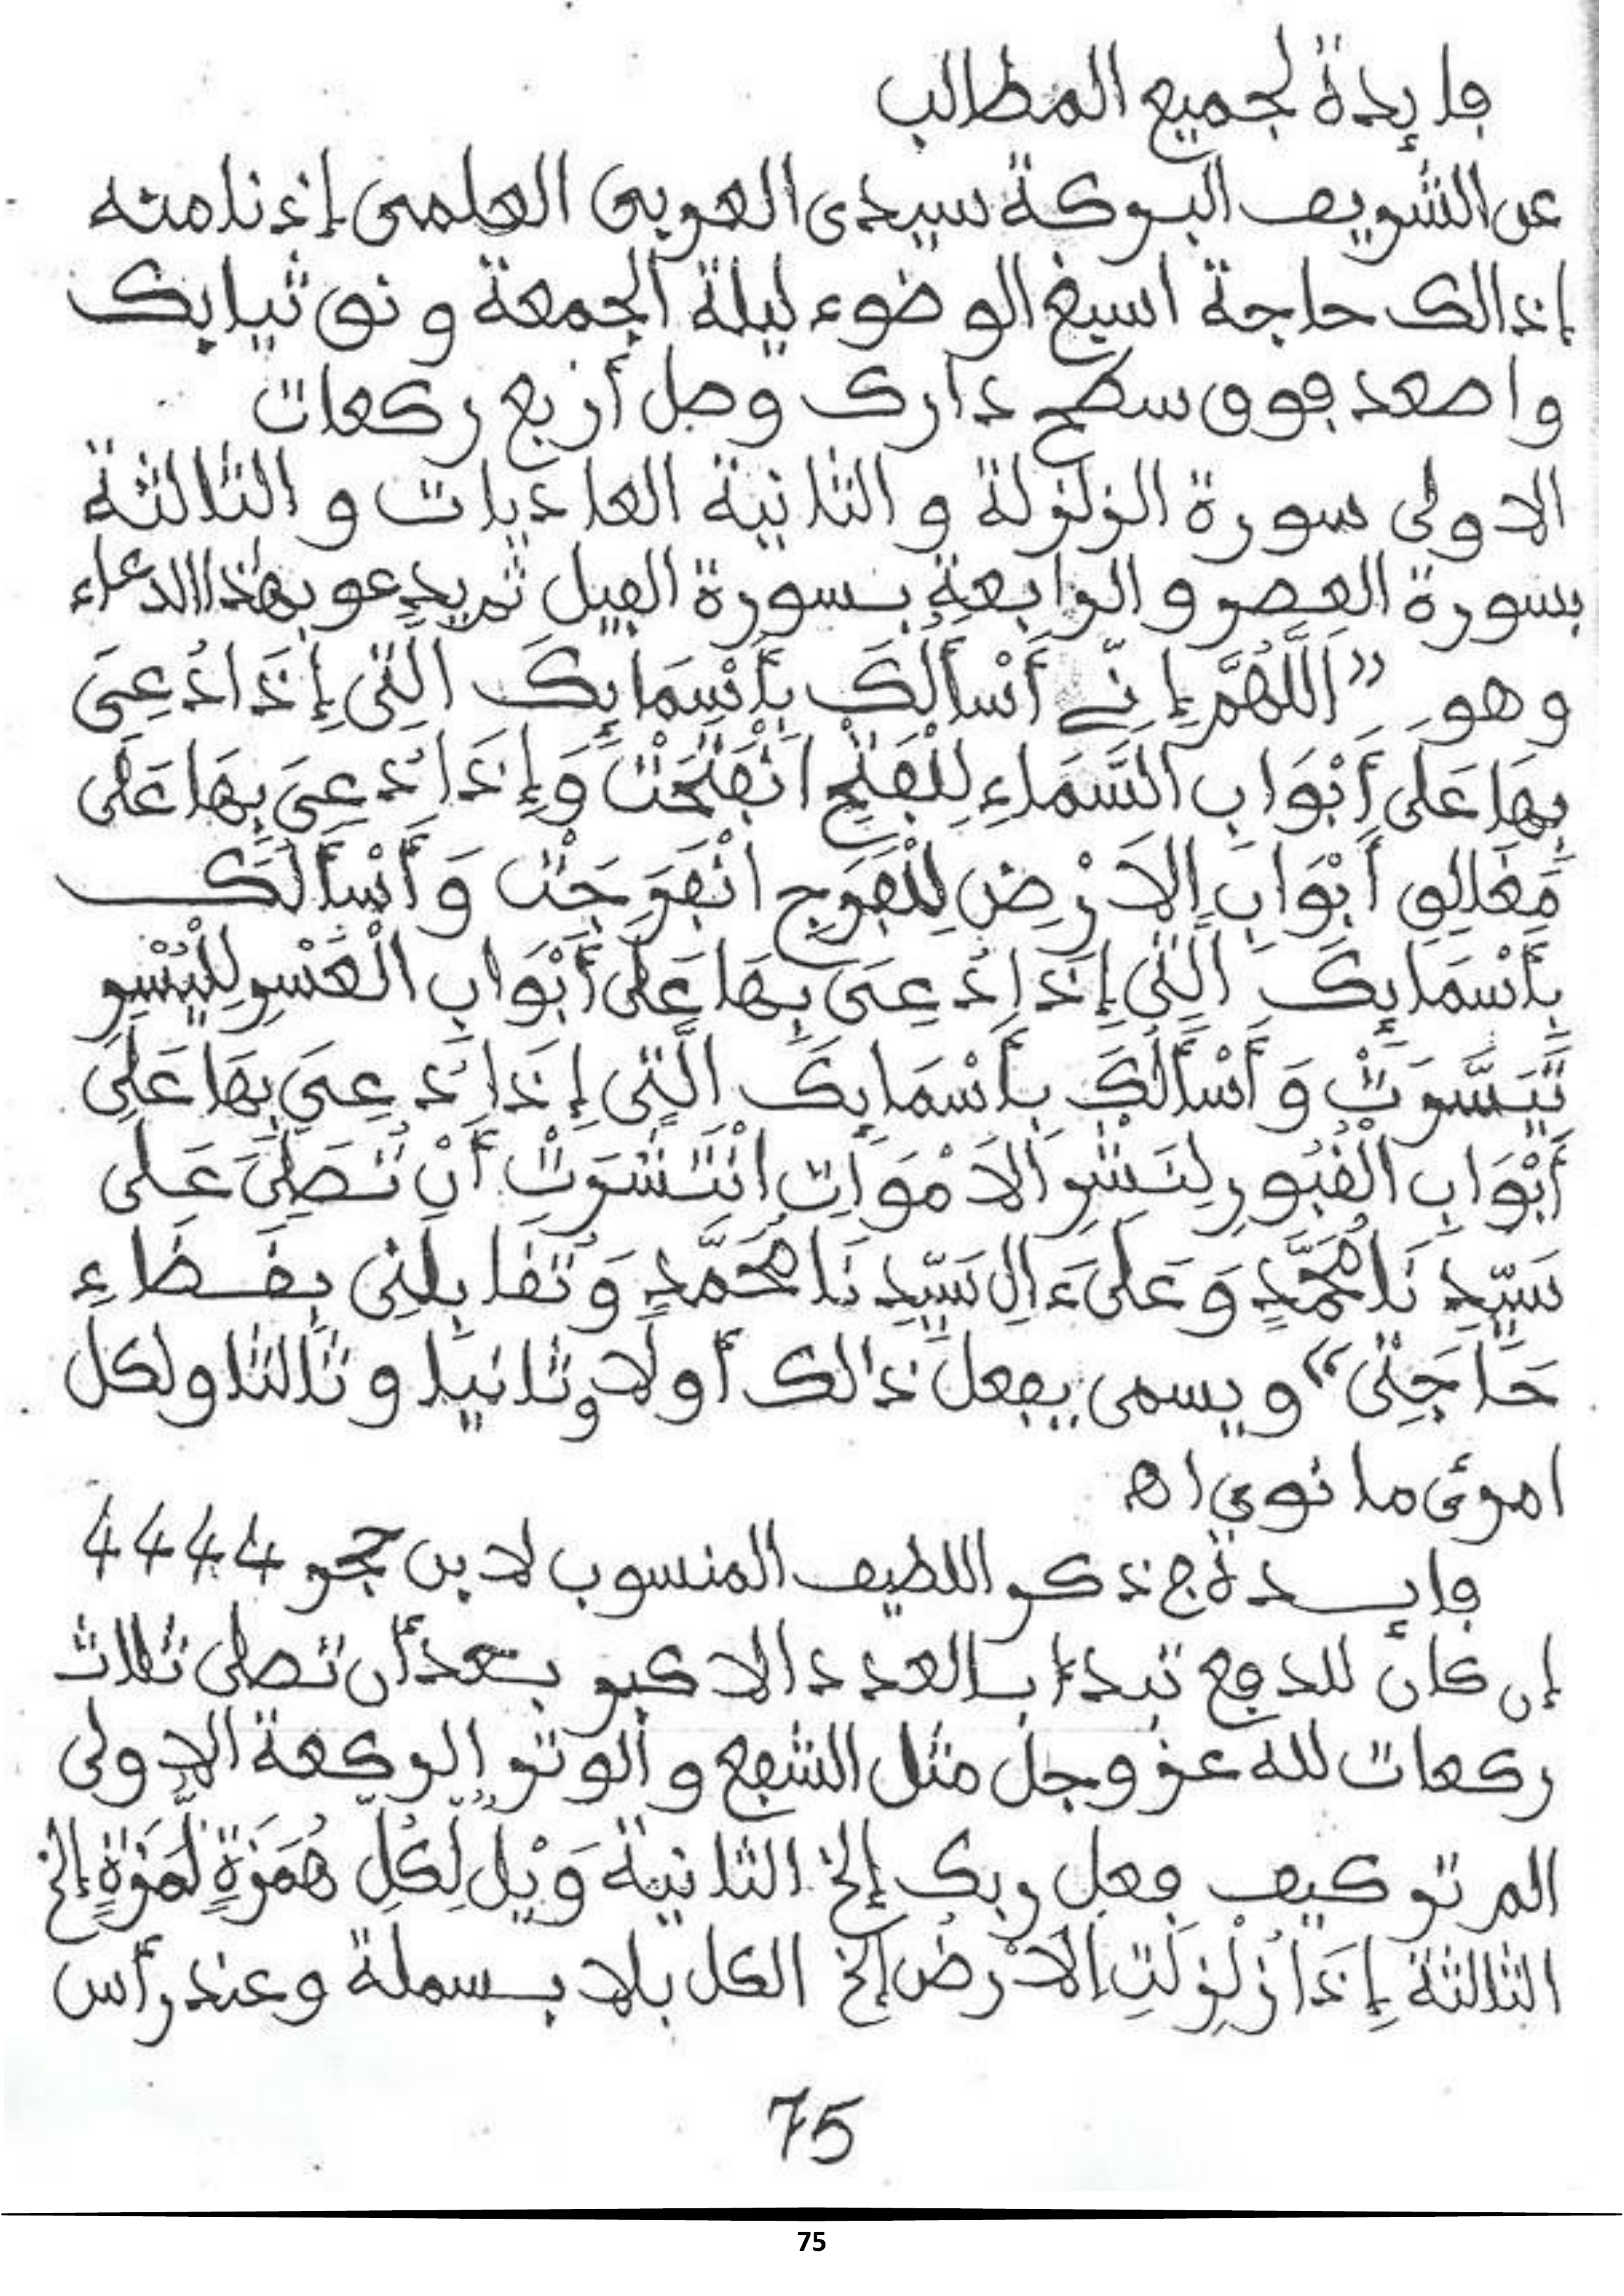 فايدة لجميع المطالب
عن الشريف البركة سيدى العربى العلمى إذنا منه
إذالك حاجة اسبغ الوضوء ليلة الجمعة و نق ثيابك
واصعد فوق سطح دارك وصل أربع ركعات
الاولى سورة الزلزلة و الثانية العاديات و الثالثة
بسورة العصر و الرابعة بسورة الفيل ثم يدعو بهذا الدعاء
وهو "اَللَّهُمَّ إِنِّے أَسْألُكَ بِأَسْمَايِكَ الَّتِى إِذَا دُعِىَ
بِهَا عَلَى أَبْوَابِ السَّمَاءِ لِلْفَتْحِ انْفَتَحَتْ وَإِذَا دُعِىَ بِهَا عَلَى
مَغَالِقِ أَبْوَابِ اِلاَرْضِ لِلْفَرَجِ انْفَرَجَتْ وَأَسْألُكَ
بِأَسْمَايِكَ الَّتِى إِذَا دُعِىَ بِهَا عَلَى أَبْوَابِ الْعُسْرِ لِلْيُسْرِ
تَيَسَّرَتْ وَأَسْألُكَ بِأَسْمَايِكَ الَّتِى إِذَا دُعِىَ بِهَا عَلَى
أَبْوَابِ الْقُبُورِ لِنَشْرِ اَلاَمْوَاتِ انْتَشَرَتْ أَنْ تُصَلِّىَ عَلَى
سَيِّدِنَا مُحَمَّدٍ وَعَلَى ءَالِ سَيِّدِنَا مُحَمَّدٍ وَتُقَابِلَنِى بِقَضَاءِ
حَاجَتِى" ويسمى يفعل ذالك أولا وثانيا وثالثا ولكل
امرئ ما نوى اه
فايدة ج ذكر اللطيف المنسوب لابن حجر 4444
إن كان للدفع تبدء بالعدد الاكبر بعد أن تصلى ثلاث
ركعات لله عز وجل مثل الشفع و الوتر إلركعة الاولى
الم تر كيف فعل ربك إلخ الثانية وَيْلٌ لِّكُلِّ هُمَزَةٍ لُّمَزَةٍ إلخ
الثالثة إِذَا زُلْزِلَتِ اِلاَرْضُ إلخ الكل بلا بسملة وعند رأس
75
75